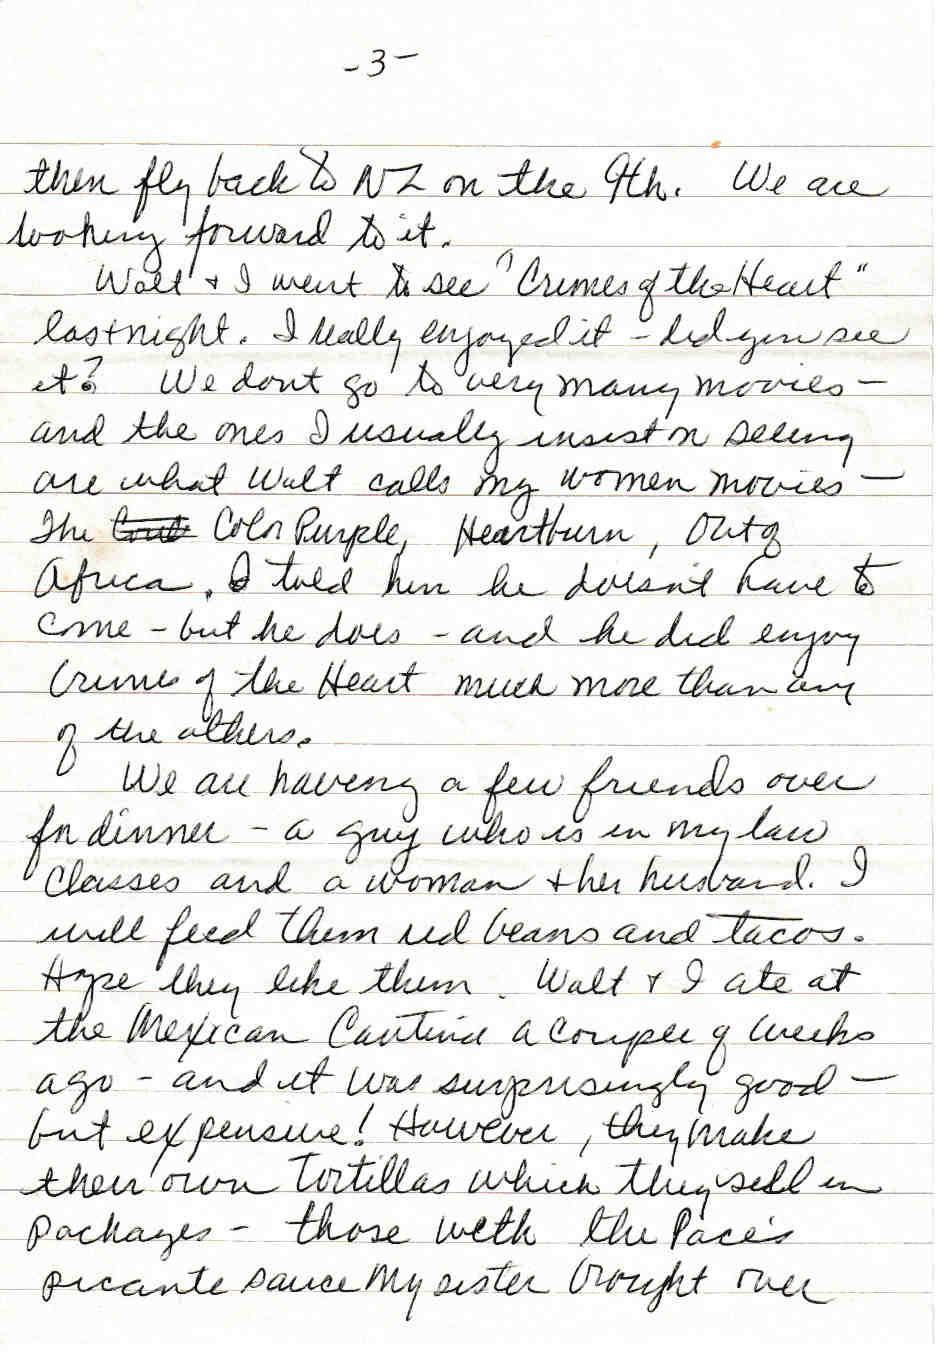 -3-
then fly back to NZ on the 9th. We are
looking forward to it.
Walt + I went to see "Crimes of the Heart"
last night. I really enjoyed it - did you see
it? We dont go to very many movies -
and the ones I usually insist on seeing
are what Walt calls my women movies -
The Color Purple, Heartburn, Out of
Africa. I told him he doesn't have to
come - but he does - and he did enjoy
Crimes of the Heart much more than any
of the others.
We are having a few friends over
for dinner - a guy who is in my law
classes and a woman + her husband. I
will feed them red beans and tacos.
Hope they like them. Walt + I ate at
the Mexican Cantina a couple of weeks
ago - and it was surprisingly good -
but expensive! However, they make
their own Tortillas which they sell in
packages - those with the Pace's
picante sauce my sister brought over